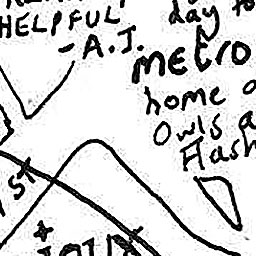 HELPFUL
- A.J.
day to
metro
home o
Owls a
Flash
st